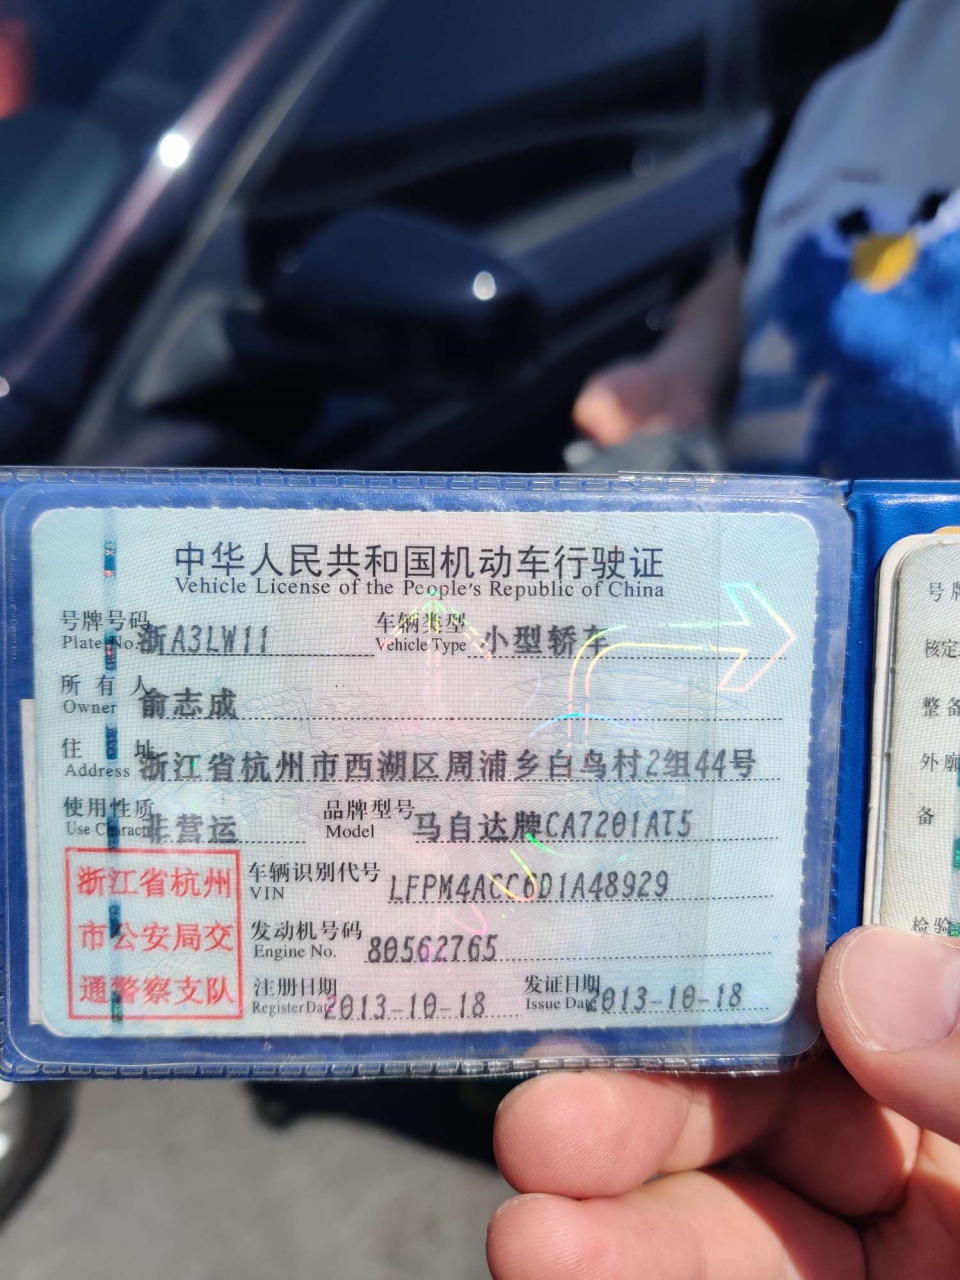 中华人民共和国机动车行驶证
Vehicle License of the People's Republic of China
号牌号码 浙A3LW11 车辆类型 小型轿车
Plate No. Vehicle Type
所有人 俞志成
Owner
住址 浙江省杭州市西湖区周浦乡白鸟村2组44号
Address
使用性质 非营运 品牌型号 马自达牌CA7201AT5
Use Character Model
浙江省杭州
市公安局交
通警察支队
车辆识别代号 LFPM4ACC6D1A48929
VIN
发动机号码 80562765
Engine No.
注册日期 2013-10-18 发证日期 2013-10-18
Register Date Issue Date
号牌
核定
整备
外廓
备
检验